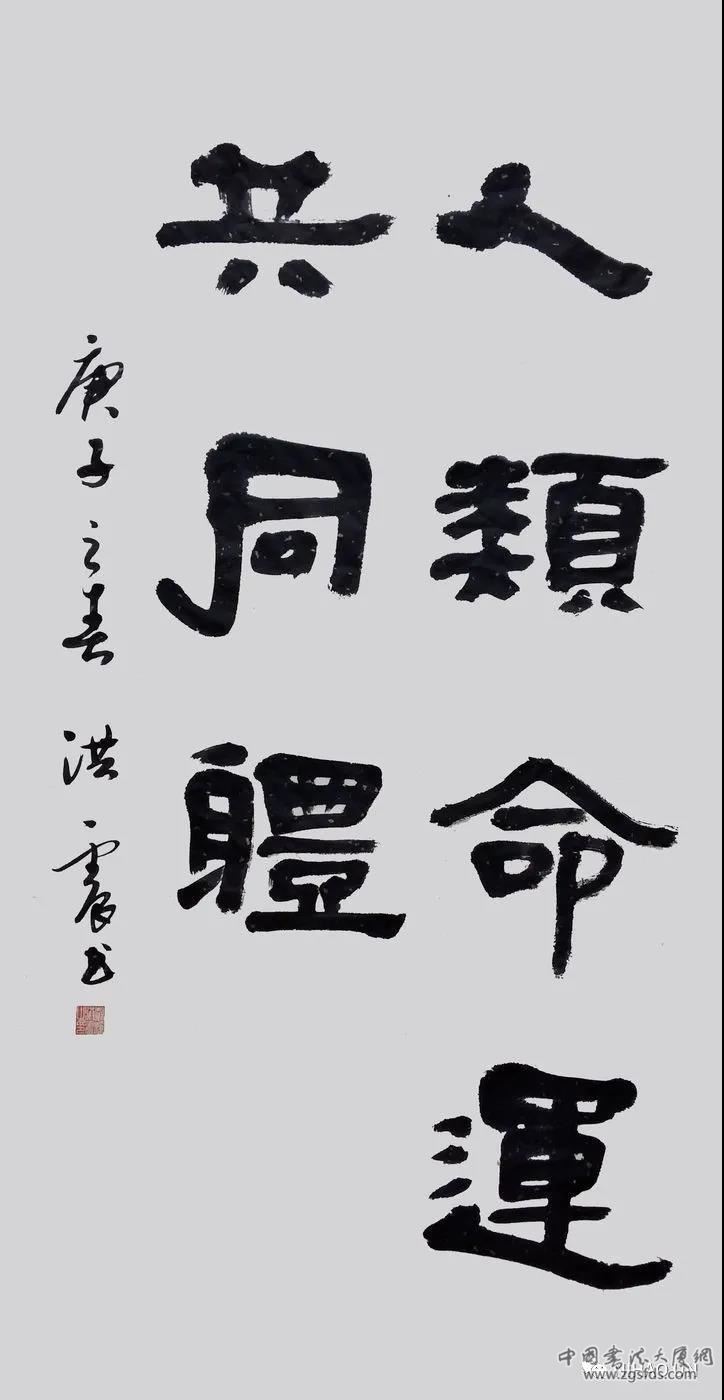 人類命運
共同體
庚子之春 洪震书
中國書法大廈網
www.zgsfds.com